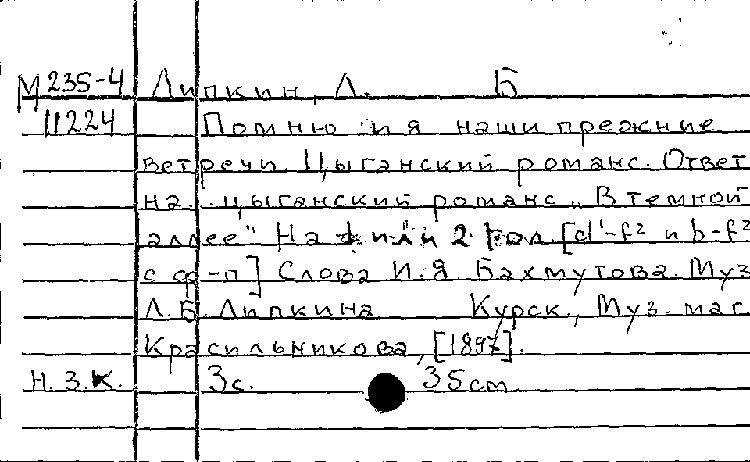 М 235-4 Липкин, Л. Б
11224 Помню и я наши прежние
встречи Цыганский романс. Ответ
на „цыганский романс „В темной
аллее" На 1 или 2 гол. [d'-f² и b-f²
с ф-п] Слова И.Я. Бахмутова. Муз
Л.Б. Липкина Курск, Муз. маг.
Красильникова, [1897].
Н.З.К. 3с. 35см.